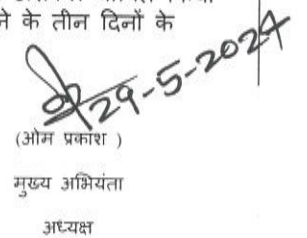 ने के तीन दिनों के
29-5-2024
(ओम प्रकाश )
मुख्य अभियंता
अध्यक्ष